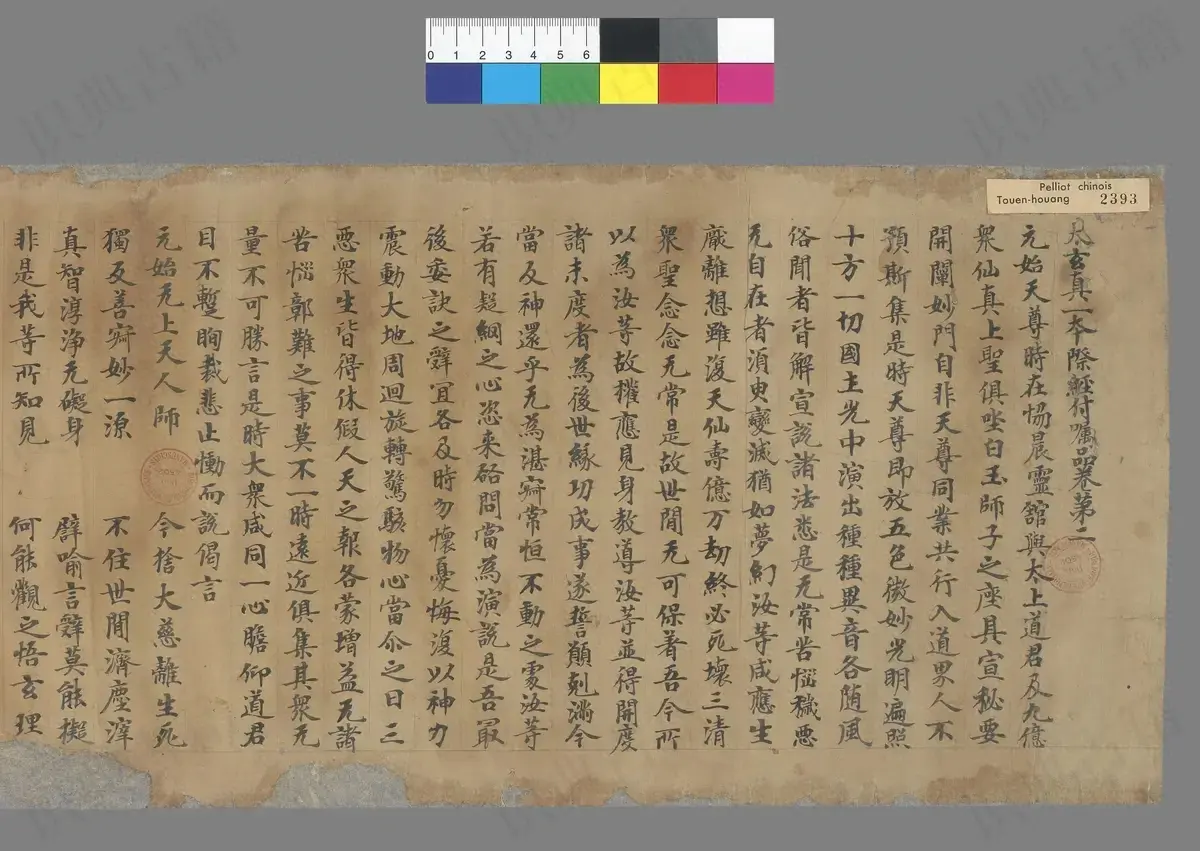 Pelliot chinois
Touen-houang 2393
0 1 2 3 4 5 6
太玄真一本際經付囑品卷第二
元始天尊時在協晨靈館與太上道君及九億
衆仙真上聖俱坐白玉師子之座具宣秘要
開闡妙門自非天尊同業共行入道界人不
預斯集是時天尊即放五色微妙光明遍照
十方一切國土光中演出種種異音各随風
俗聞者皆解宣說諸法悉是无常苦惱穢惡
无自在者須臾變滅猶如夢幻汝等咸應生
厭離想雖復天仙壽億万劫終必死壞三清
衆聖念念无常是故世間无可保著吾今所
以為汝等故權應見身教導汝等並得開度
諸未度者為後世緣功成事遂誓願剋満今
當反神還乎无為湛寂常恒不動之處汝等
若有疑網之心恣来諮問當為演說是吾冣
後委訣之辭宜各及時勿懷憂悔復以神力
震動大地周迴旋轉驚駭物心當尒之日三
惡衆生皆得休假人天之報各蒙增益无諸
苦惱鄣難之事莫不一時遠近俱集其衆无
量不可勝言是時大衆咸同一心瞻仰道君
目不暫眴哀悲止慟而說偈言
元始无上天人師 今捨大慈離生死
獨反善寂妙一源 不住世間濟塵滓
真智淳淨无礙身 譬喻言辭莫能擬
非是我等所知見 何能觀之悟玄理